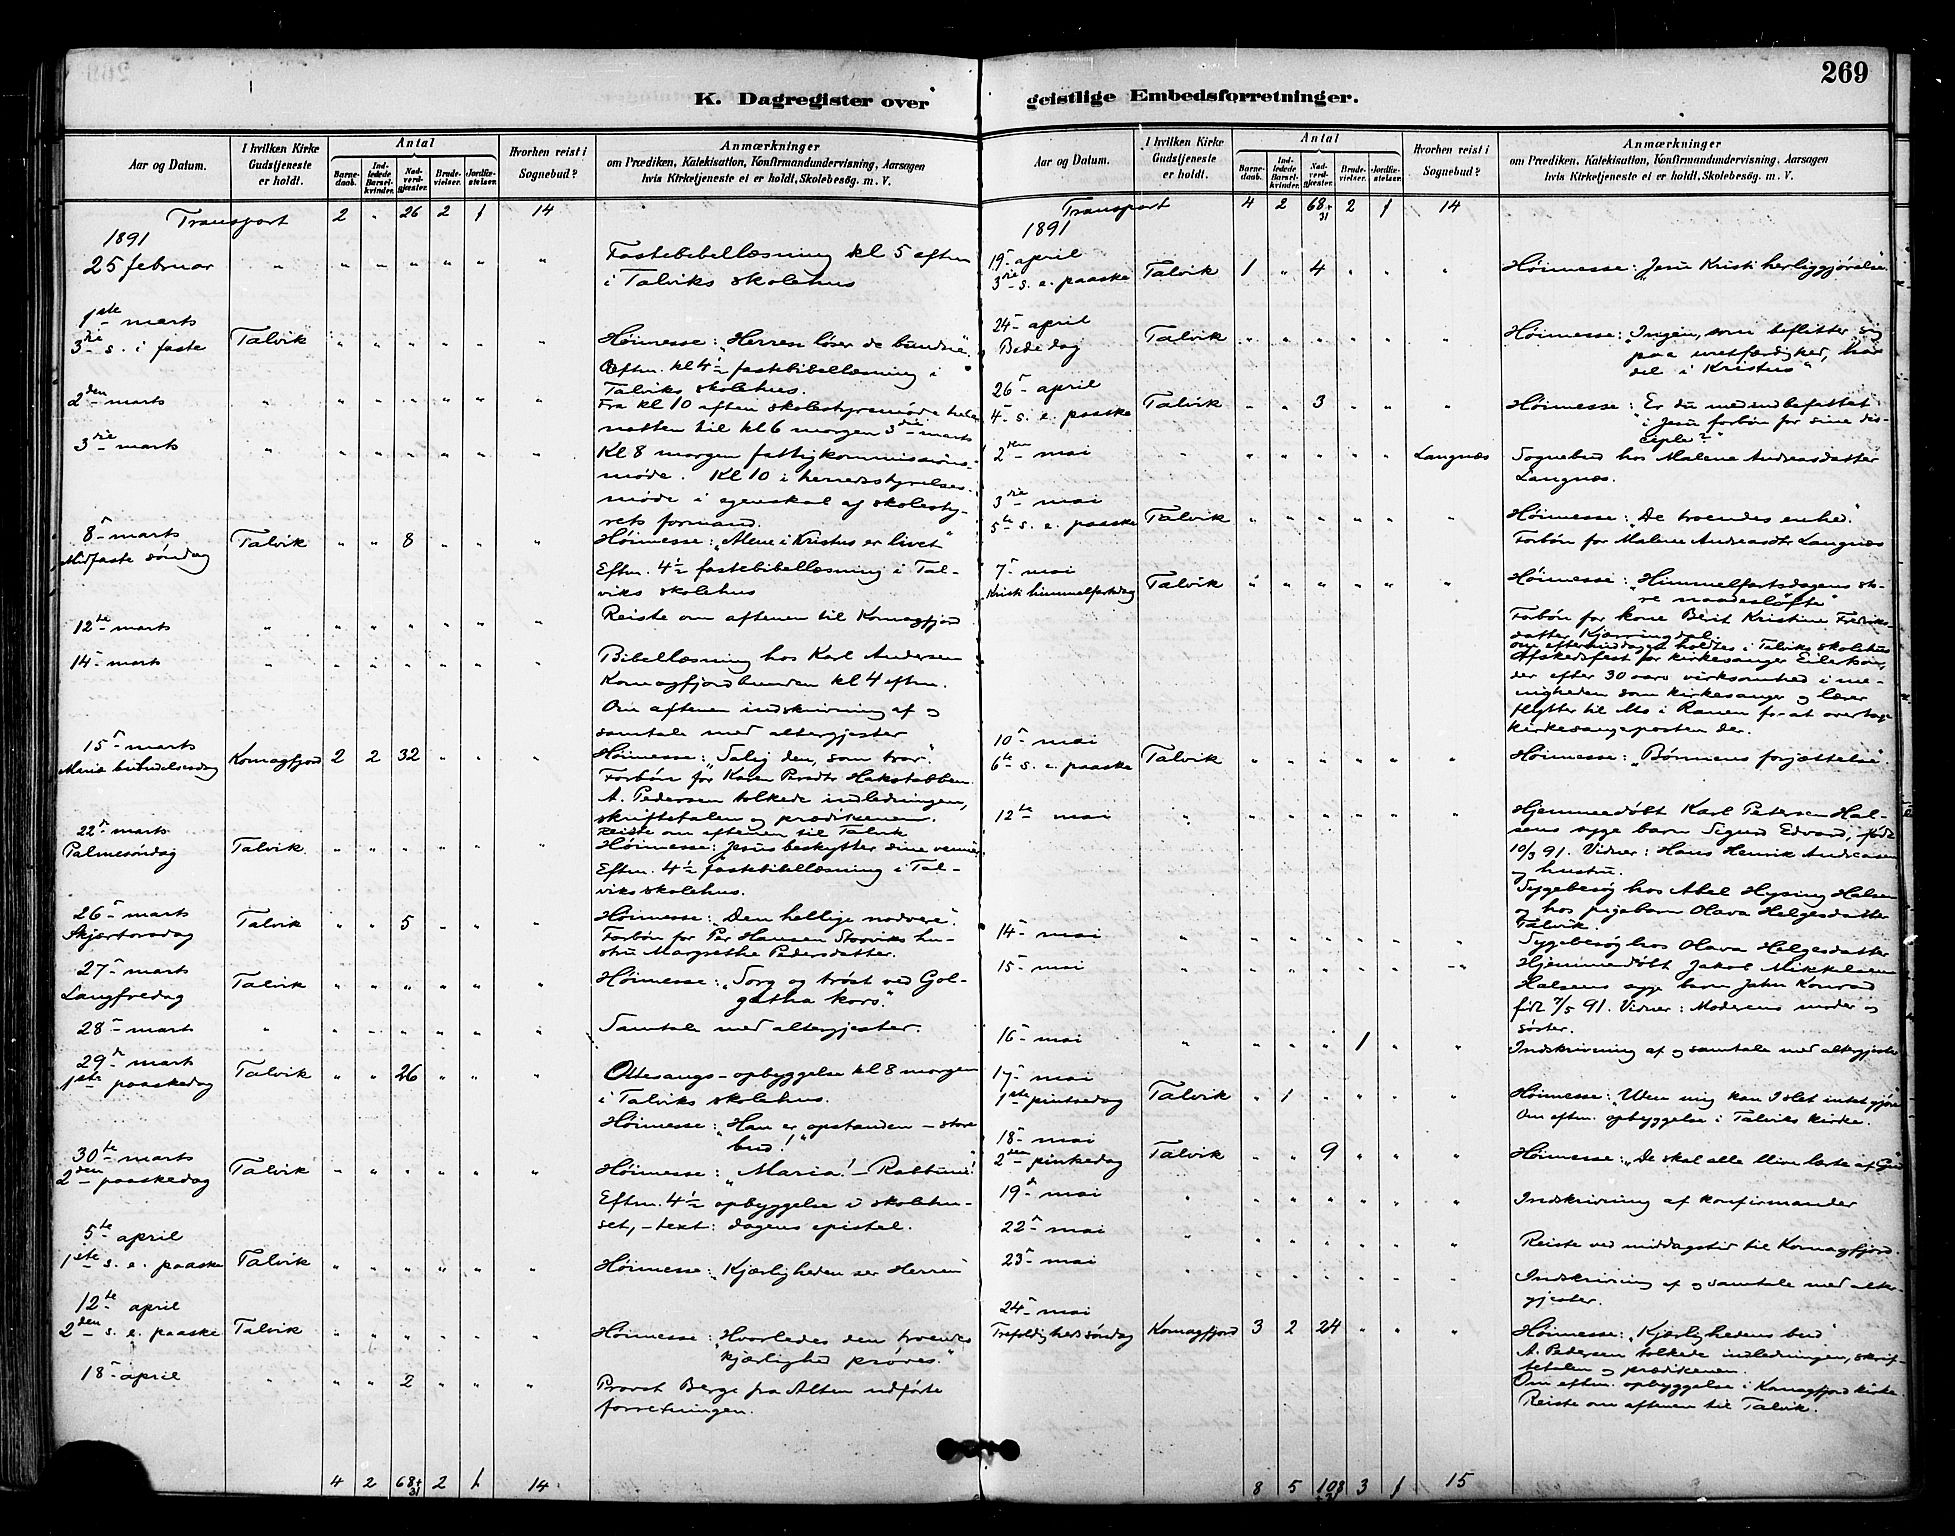 269
K. Dagregister over geistlige Embedsforretninger.
Aar og Datum.
I hvilken Kirke Gudstjeneste er holdt.
Antal
Barnedaab.
Indledede Barselkvinder.
Nadverdgjester.
Brudevielser.
Jordfæstelser.
Hvorhen reist i Sognebud?
Anmærkninger
om Prædiken, Katekisation, Konfirmandundervisning, Aarsagen
hvis Kirketjeneste ei er holdt, Skolebesøg. m. V.
Transport 2 " 26 2 1 14
1891
25 februar " " " " " " " Fastebibellæsning kl 5 eftm
i Talviks skolehus
1ste marts
3die s. i faste Talvik " " " " " " Høimesse: "Herren løser de bundne"
Eftm. kl 4½ fastebibellæsning i
Talviks skolehus.
2den marts " " " " " " " Fra kl 10 eftm skolestyremøde hele
natten til kl 6 morgen 3die marts
3die marts " " " " " " " Kl 8 morgen fattigkommissions-
møde. Kl 10 i herredsstyrelses-
møde i egenskab af skolesty-
rets formand.
8- marts
Midfaste søndag Talvik " " 8 " " " Høimesse: "Alene i Kristus er livet"
Eftm. 4½ fastebibellæsning i Tal-
viks skolehus
12te marts " " " " " " " Reiste om aftenen til Komagfjord
14- marts " " " " " " " Bibellæsning hos Karl Andersen
Komagfjordbunden kl 4 eftm.
Om aftenen indskrivning af og
samtale med altergjester
15- marts
Mariæ budskabsdag Komagfjord 2 2 32 " " " Høimesse: "Salig den, som tror".
Forbøn for Karen Persdtr Hakstabben
A. Pedersen tolkede indledningen,
skriftetalen og prædikenen.
Reiste om aftenen til Talvik
22- marts
Palmesøndag Talvik " " " " " " Høimesse: Jesus beskytter dine venner
Eftm. 4½ fastebibellæsning i Tal-
viks skolehus.
26- marts
Skjærtorsdag Talvik " " 5 " " " Høimesse: "Den hellige nadvere".
Forbøn for Per Hansen Storviks hu-
stru Margrethe Pedersdatter.
27- marts
Langfredag Talvik " " " " " " Høimesse: "Sorg og trøst ved Gol-
gatha kors."
28- marts " " " " " " " Samtale med altergjester.
29- marts
1ste paaskedag Talvik " " 26 " " " Ottesangs-opbyggelse kl 8 morgen
i Talviks skolehus.
Høimesse: "Han er opstanden – store
bud!"
30te marts
2den paaskedag Talvik " " " " " " Høimesse: "Maria! – Rabbuni!"
Eftm. 4½ opbyggelse i skolehu-
set, – text: dagens epistel.
5te april
1ste s. e. paaske Talvik " " " " " " Høimesse: "Kjærligheden ser Herren"
12te april
2den s. e. paaske Talvik " " " " " " Høimesse: "Hvorledes den troendes
kjærlighed prøves."
18- april " " " 2 " " " Provst Berge fra Alten udførte
forretningen.
4 2 68+31 2 1 14
Aar og Datum.
I hvilken Kirke Gudstjeneste er holdt.
Antal
Barnedaab.
Indledede Barselkvinder.
Nadverdgjester.
Brudevielser.
Jordfæstelser.
Hvorhen reist i Sognebud?
Anmærkninger
om Prædiken, Katekisation, Konfirmandundervisning, Aarsagen
hvis Kirketjeneste ei er holdt, Skolebesøg. m. V.
Transport 4 2 68+31 2 1 14
1891
19- april
3die s. e. paaske Talvik 1 " 4 " " " Høimesse: "Jesu Kristi herliggjørelse"
24- april
Bededag Talvik " " " " " " Høimesse: "Ingen, som beflitter sig
paa uretfærdighed, har
del i Kristus"
26- april
4- s. e. paaske Talvik " " 3 " " " Høimesse: "Er du medindbefattet
i Jesu forbøn for sine dis-
ciple?"
2den mai " " " " " " Langnæs Sognebud hos Malene Andreasdatter
Langnæs.
3die mai
5te s. e. paaske Talvik " " " " " " Høimesse: "De troendes enhed".
Forbøn for Malene Andreasdtr Langnæs
7- mai
Kristi himmelfartsdag Talvik " " " " " " Høimesse: "Himmelfartsdagens sto-
re naadesløfte"
Forbøn for kone Berit Kristine Fredriks-
datter Kjærringdal.
Om eftermiddagen holdtes i Talviks skolehus
Afskedsfest for kirkesanger Eilertsen,
der efter 30 aars virksomhed i me-
nigheden som kirkesanger og lærer
flytter til Mo i Ranen for at overtage
kirkesangerposten der.
10- mai
6te s. e. paaske Talvik " " " " " " Høimesse: "Bønnens forjættelse"
12te mai " " " " " " " Hjemmedøbt Karl Petersen Hal-
sens syge barn Sigurd Edvard, født
10/3 91. Vidner: Hans Henrik Andreasen
og hustru.
Sygebesøg hos Abel Hysing Halsen
og hos pigebarn Olava Helgesdatter
Talvik.
14- mai " " " " " " " Sygebesøg hos Olava Helgesdatter
15- mai " " " " " " " Hjemmedøbt Jakob Mikkelsen
Halsens syge barn John Konrad
født 7/5 91. Vidner: Moderens moder og
søster.
16- mai " " " " 1 " " Indskrivning af og samtale med altergjester
17- mai
1ste pintsedag Talvik " 1 " " " " Høimesse: "Uden mig kan I slet intet gjøre"
Om eftm. opbyggelse i Talviks kirke.
18- mai
2den pinsedag Talvik " " 9 " " " Høimesse: "De skal alle blive lærte af Gud"
19- mai " " " " " " " Indskrivning af konfirmander
22- mai " " " " " " " Reiste ved middagstid til Komagfjord.
23- mai " " " " " " " Indskrivning af og samtale med alter-
gjester.
24- mai
Trefoldighedssøndag Komagfjord 3 2 24 " " " Høimesse: "Kjærlighedens bud"
A. Pedersen tolkede indledningen, skrif-
tetalen og prædikenen.
Om eftm. opbyggelse i Komagfjord kirke
Reiste om aftenen til Talvik.
8 5 108+31 3 1 15